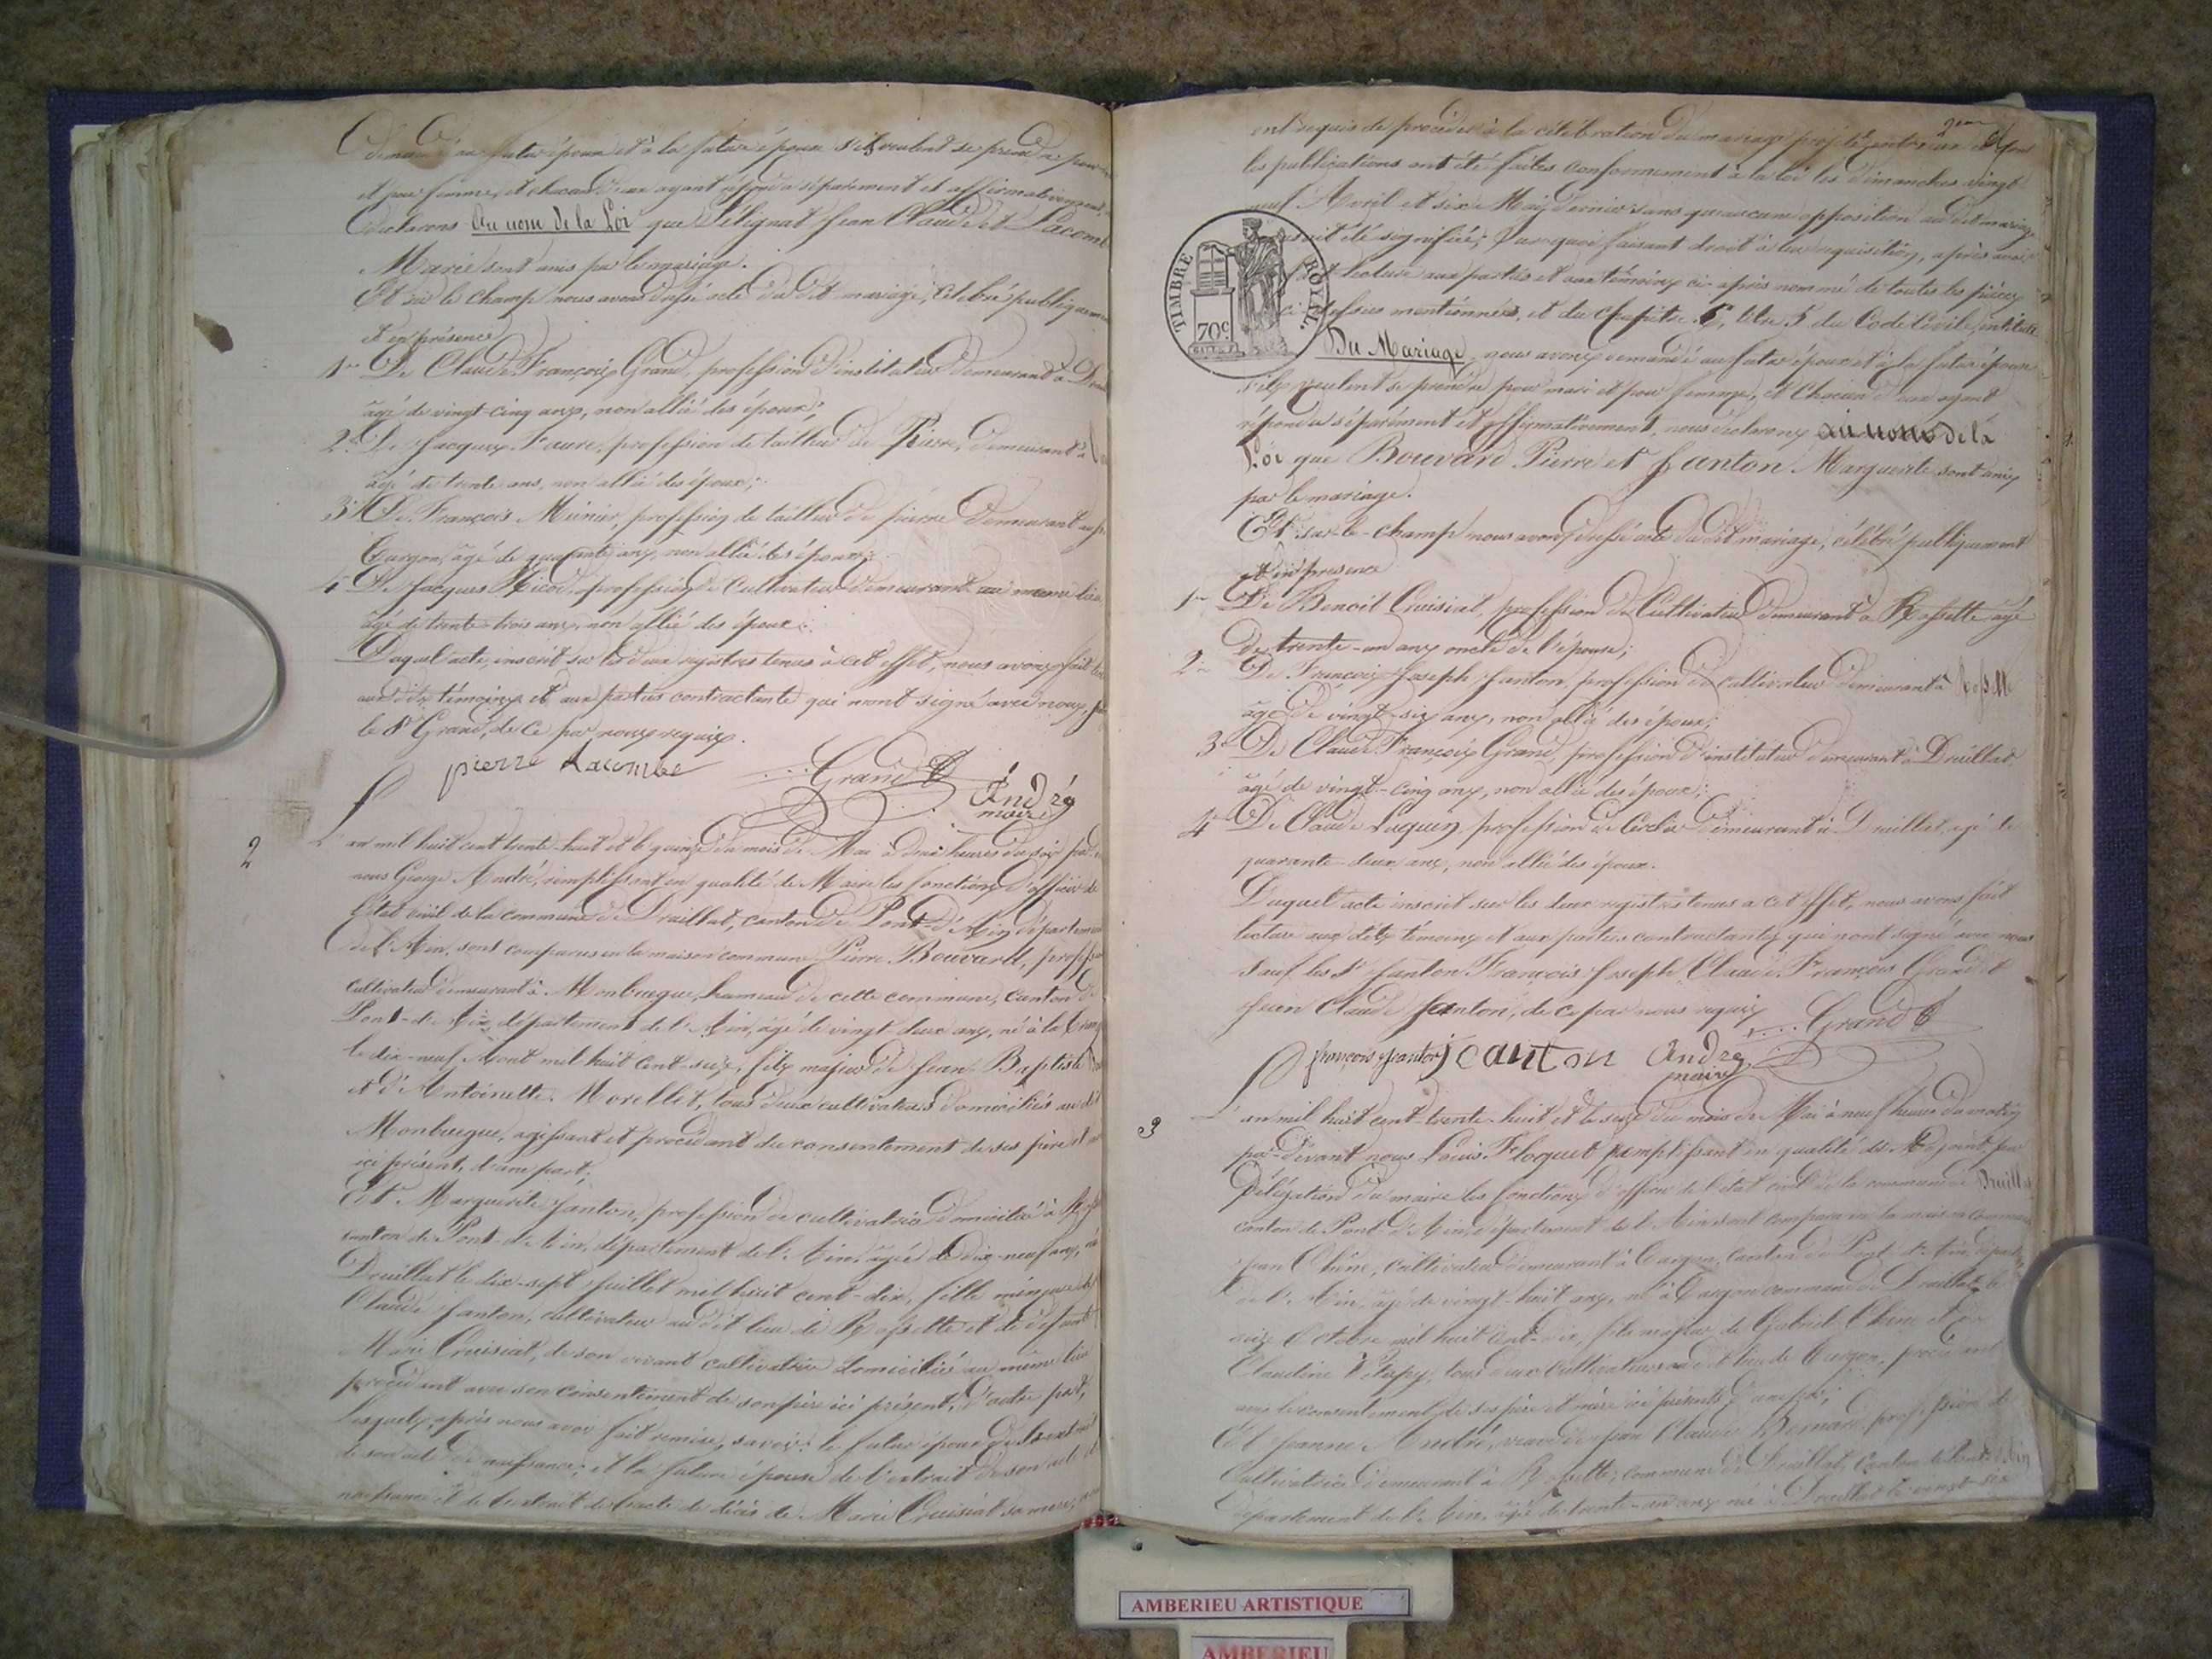 demandé au futur époux et à la future épouse s'ils veulent se prendre pour
et pour femme, et chacun d'eux ayant répondu séparément et affirmativement,
déclarons Au nom de la Loi que Pélignat Jean Claude et Lacombe
Marie sont unis par le mariage.
Et sur le champ nous avons dressé acte du dit mariage, célébré publiquement
et en présence
1er De Claude François Grand, profession d'instituteur demeurant à
âgé de vingt-cinq ans, non allié des époux;
2e De Jacques Faure, profession de tailleur de Pierre, demeurant à
âgé de trente ans, non allié des époux;
3e De François Munier, profession de tailleur de pierre demeurant
Turgon, âgé de quarante ans, non allié des époux;
4 De Jacques Nicod, profession de Cultivateur demeurant au même lieu
âgé de trente-trois ans, non allié des époux.
Duquel acte, inscrit sur les deux registres tenus à cet effet, nous avons fait
aux dits témoins et aux parties contractante qui n'ont signé avec nous,
le Sr Grand, de ce par nous requis.
pierre Lacombe Grand
André
maire
2
L'an mil huit cent trente-huit et le quinze du mois de Mai à deux heures du soir
nous George André, remplissant en qualité de Maire les fonctions d'officier de
l'état civil de la commune de Druillat, canton de Pont-d'Ain département
de l'Ain, sont comparus en la maison commune Pierre Bouvard,
cultivateur demeurant à Monburgue, hameau de cette commune, canton de
Pont-d'Ain, département de l'Ain, âgé de vingt deux ans, né à la
le dix-neuf Aout mil huit cent-seize, fils majeur de Jean Baptiste
et d'Antoinette Morellet, tous deux cultivateurs domiciliés au dit
Monburgue, agissant et procédant du consentement de ses père et
ici présent, d'une part;
Et Marguerite Janton, profession de cultivatrice domiciliée à
canton de Pont-d'Ain, département de l'Ain, âgée de dix-neuf ans,
Druillat le dix-sept Juillet mil huit cent-dix, fille mineure de
Claude Janton, cultivateur au dit lieu de Rossette et de défunte
Marie Cruisiat, de son vivant cultivatrice domiciliée au même lieu
procédant avec son consentement de son père ici présent, d'autre part,
Lesquels, après nous avoir fait remise, savoir: le futur époux de l'extrait
de son acte de naissance; et la future épouse de l'extrait de son acte de
naissance et de l'extrait de l'acte de décès de Marie Cruisiat sa mère,
ont requis de procéder à la célébration du mariage projeté entre eux
les publications ont été faites conformement à la loi les dimanches vingt
neuf Avril et six Mai dernier sans qu'aucune opposition au dit mariage
ait été signifiée; Pourquoi faisant droit à leur réquisition, après avoir
fait lecture aux parties et aux témoins ci-après nommé de toutes les pièces
ci-dessus mentionnées, et du chapitre 6, titre 5 du Code Civile, intitulé
TIMBRE ROYAL.
70c
Du Mariage, nous avons demandé au futur époux et à la future épouse
s'ils veulent se prendre pour mari et pour femme, et Chacun d'eux ayant
répondu séparément et affirmativement, nous déclarons au nom de la
Loi que Bouvard Pierre et Janton Marguerite sont unis
par le mariage.
Et sur-le-champ nous avons dressé acte du dit mariage, célébré publiquement
et en présence
1er De Benoit Cruisiat, profession de Cultivateur demeurant à Rossette âgé
de trente-un ans oncle de l'épouse;
2e De François Joseph Janton, profession de cultivateur demeurant à
âgé de vingt-six ans, non allié des époux;
3e De Claude François Grand, profession d'instituteur demeurant à Druillat
âgé de vingt-cinq ans, non allié des époux;
4e De Claude Luquin, profession de demeurant à Druillat, agé de
quarante-deux ans, non allié des époux.
Duquel acte inscrit sur les deux registres tenus a cet effet, nous avons fait
lecture aux dits témoins et aux parties contractantes qui n'ont signé avec nous
Sauf les Sr Janton François Joseph, Claude François Grand et
Jean Claude Janton, de ce par nous requis
Grand
françois janton janton André
maire
3
L'an mil huit cent-trente-huit et le seize du mois de Mai à neuf heures du matin
par-devant nous Louis Floquet remplissant en qualité de Adjoint, par
Délégation du maire les fonctions d'officier de l'état civil de la commune de Druillat
canton de Pont-d'Ain, département de l'Ain sont comparu en la maison commune
Jean Chêne, cultivateur demeurant à Turgon, Canton de Pont-d'Ain, départ
de l'Ain, âgé de vingt-huit ans, né à Turgon commune de Druillat le
Octobre mil huit cent-dix, fils majeur de Gabriel Chêne et de
Claudine tous deux Cultivateurs au dit lieu de Turgon, procédant
avec le consentement de ses père et mère ici présents, d'une part;
Et Jeanne André, veuve de Jean Claude Bernard, profession de
Cultivatrice demeurant à Rossette, commune de Druillat, Canton de Pont-d'Ain
département de l'Ain, âgée de trente-un ans née à Druillat le vingt-six
AMBERIEU ARTISTIQUE
AMBERIEU